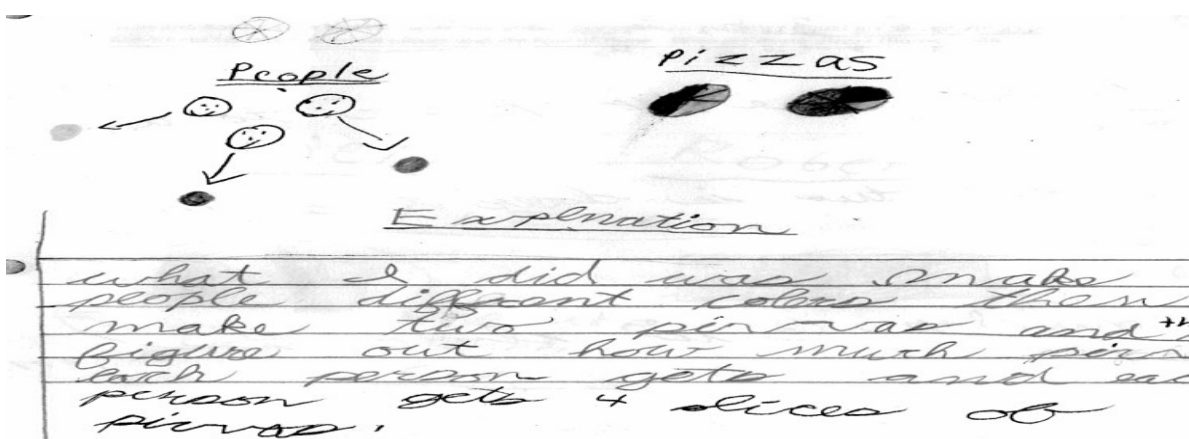 People
Pizzas
Explnation
what I did was make
people different colors then
make two pizzas and
figure out how much
each person gets and eac
person gets 4 slices of
pizzas.